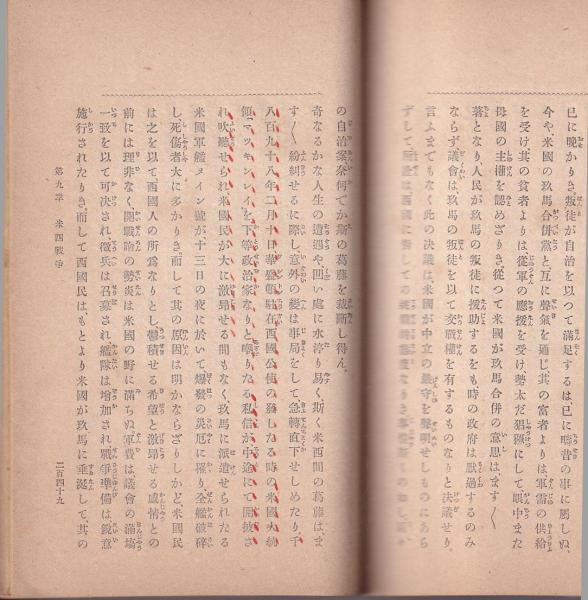 已に晩かりき、叛徒が自治を以つて滿足するは已に疇昔の事に屬しぬ、
今や米國の玖馬合併黨と互に聲氣を通じ、其の富者よりは軍需の供給
を受け其の貧者よりは從軍の應援を受け勢太だ猖獗にして眼中また
母國の主權を認めざりき、從つて米國が玖馬合併の意思は、ます〱
落となり、人民が玖馬の叛徒に援助するをも、時の政府は默過するのみ
ならず議會は、玖馬の叛徒を以て交戰權を有するものなりと決議せり、
言ふまでもなく此の決議は米國が中立の嚴守を聲明せしものにあら
ずして
の自治案奈何でか斯の葛藤を裁斷し得ん。
奇なるかな人生の遭遇や凹い處に水渟り易く、斯く米西間の葛藤は、ま
す〱紛糾せるに際し、意外の變は事局をして、急轉直下せしめたり、千
八百九十八年二月十日華盛頓駐在西國公使の發したる時の米國大統
領、マッキンレイを下等政治家なりと嘲りたる私信が中途にて開披さ
れ吹聽せられ米國民が大に激昂せる間もなく、玖馬に派遣せられたる
米國軍艦メイン號が十三日の夜に於いて爆發の災厄に罹り、全艦破碎
し、死傷者大に多かりき、而して其の原因は明かならざりしかど米國民
は之を以て、西國人の所爲なりとし、鬱積せる希望と激昂せる感情との
前には理非なく、開戰論の勢炎は米國の野に滿ちぬ、軍費は議會の滿塲
一致を以て可決され徵兵は召募され艦隊は增加され戰爭準備は銳意
施行されたりき、而して西國民は、もとより米國が玖馬に垂涎して、其の
第九章 米西戰爭
二百四十九